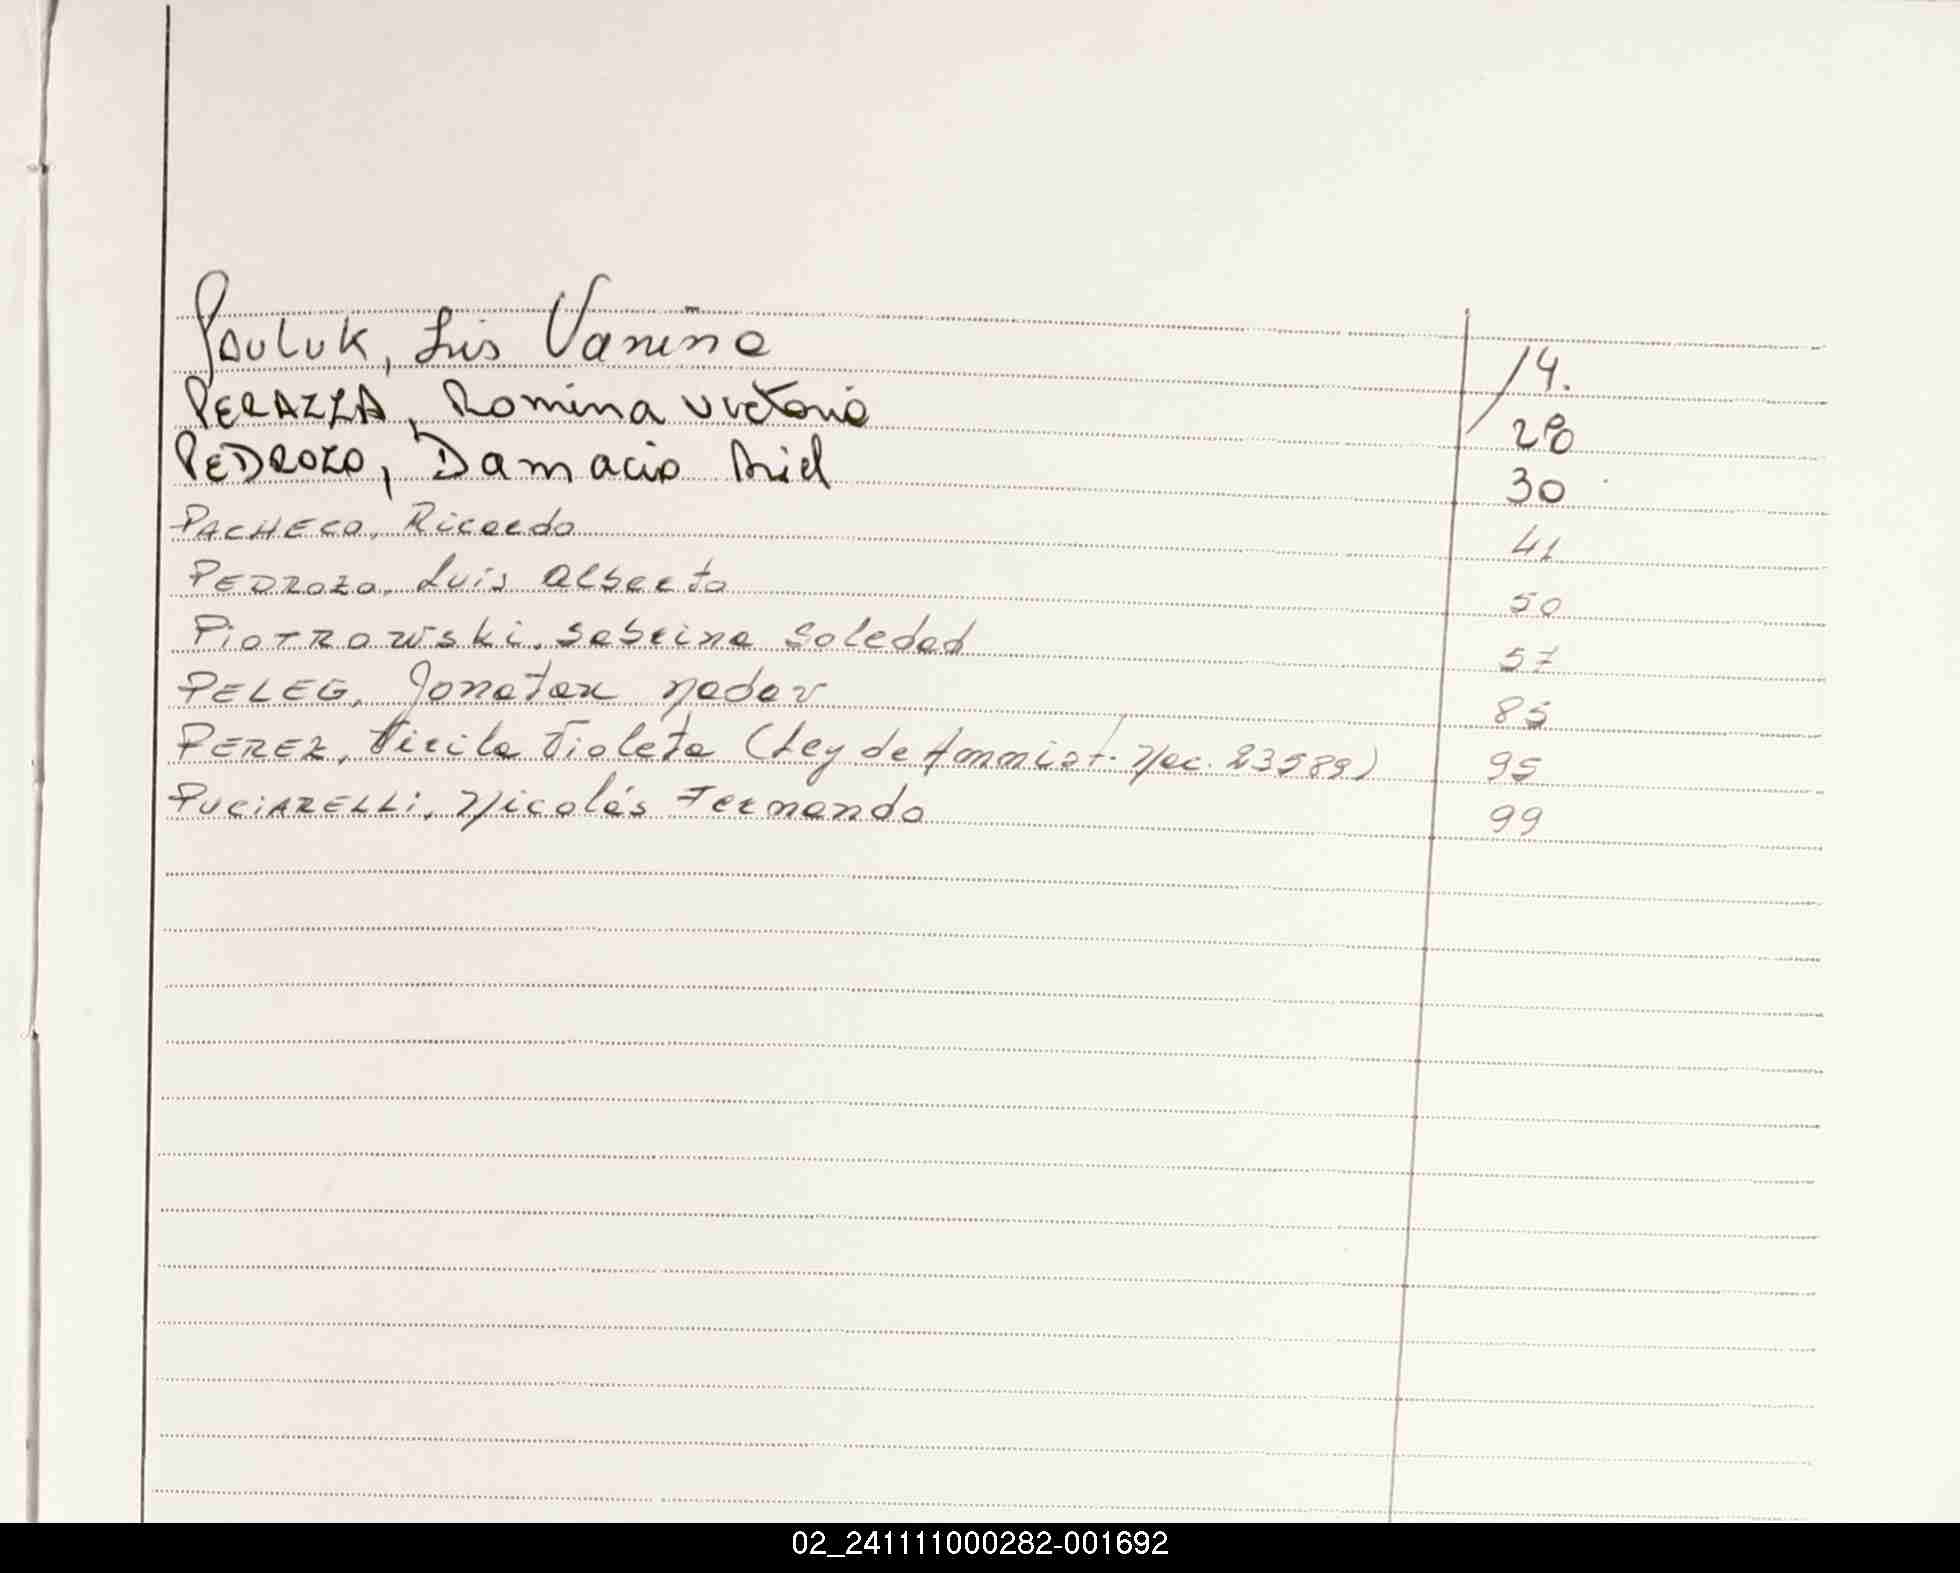 Pauluk, Lis Vanina 14.
PERAZZA, Romina Victoria 28
PEDROZO, Damacio Ariel 30
PACHECO, Ricardo 41
PEDROZO, Luis Alberto 50
PIOTROWSKI, Sabrina Soledad 57
PELEG, Jonatan Nadav 85
PEREZ, Violeta (Ley de Nac. 23589) 95
PUCIARELLI, Nicolás Fernando 99
02_241111000282-001692